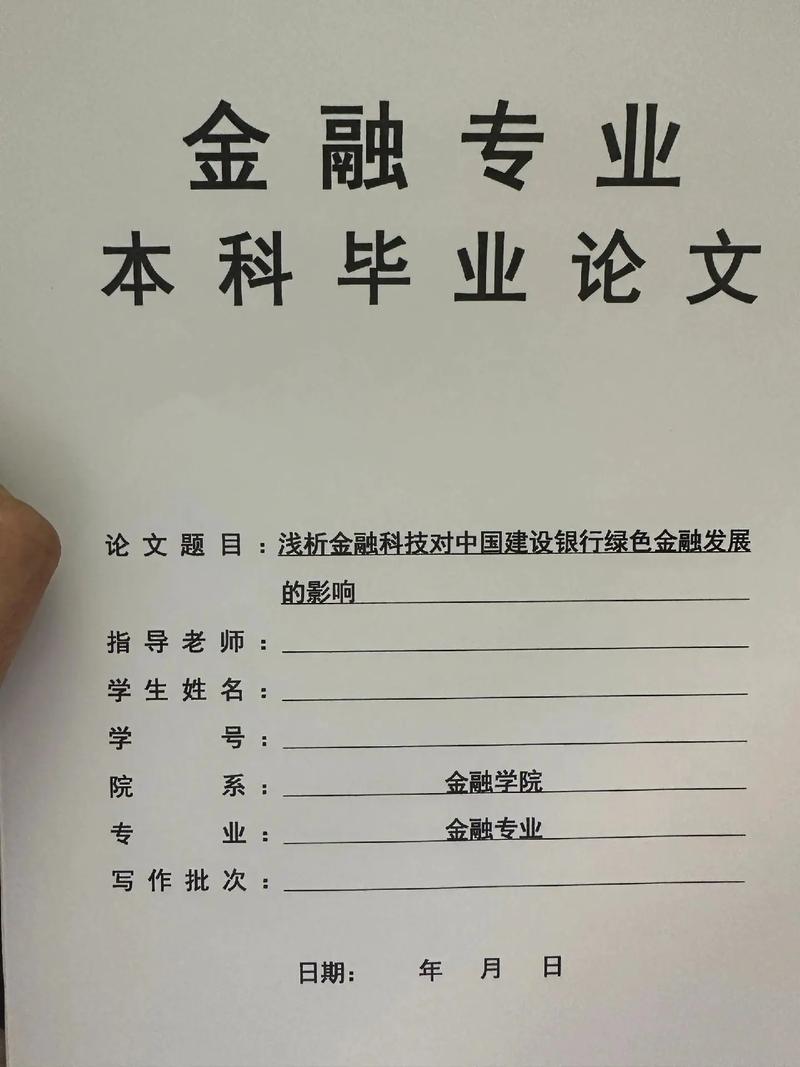 金融专业
本科毕业论文
论文题目：浅析金融科技对中国建设银行绿色金融发展
的影响
指导老师：
学生姓名：
学号：
院系：金融学院
专业：金融专业
写作批次：
日期： 年 月 日